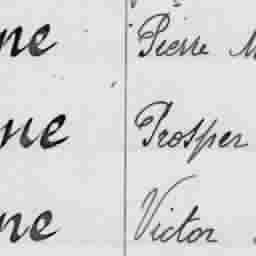 ne Pierre M
ne Prosper
ne Victor